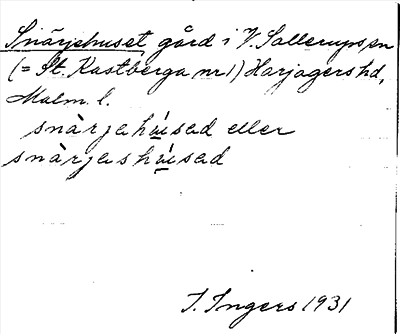 Snärjehuset, gård i V. Sallerups sn
(= St. Kastberga nr 1) Harjagers hd,
Malm. l.
snàrjahu̇́sad eller
snàrjashu̇́sad
I. Ingers 1931